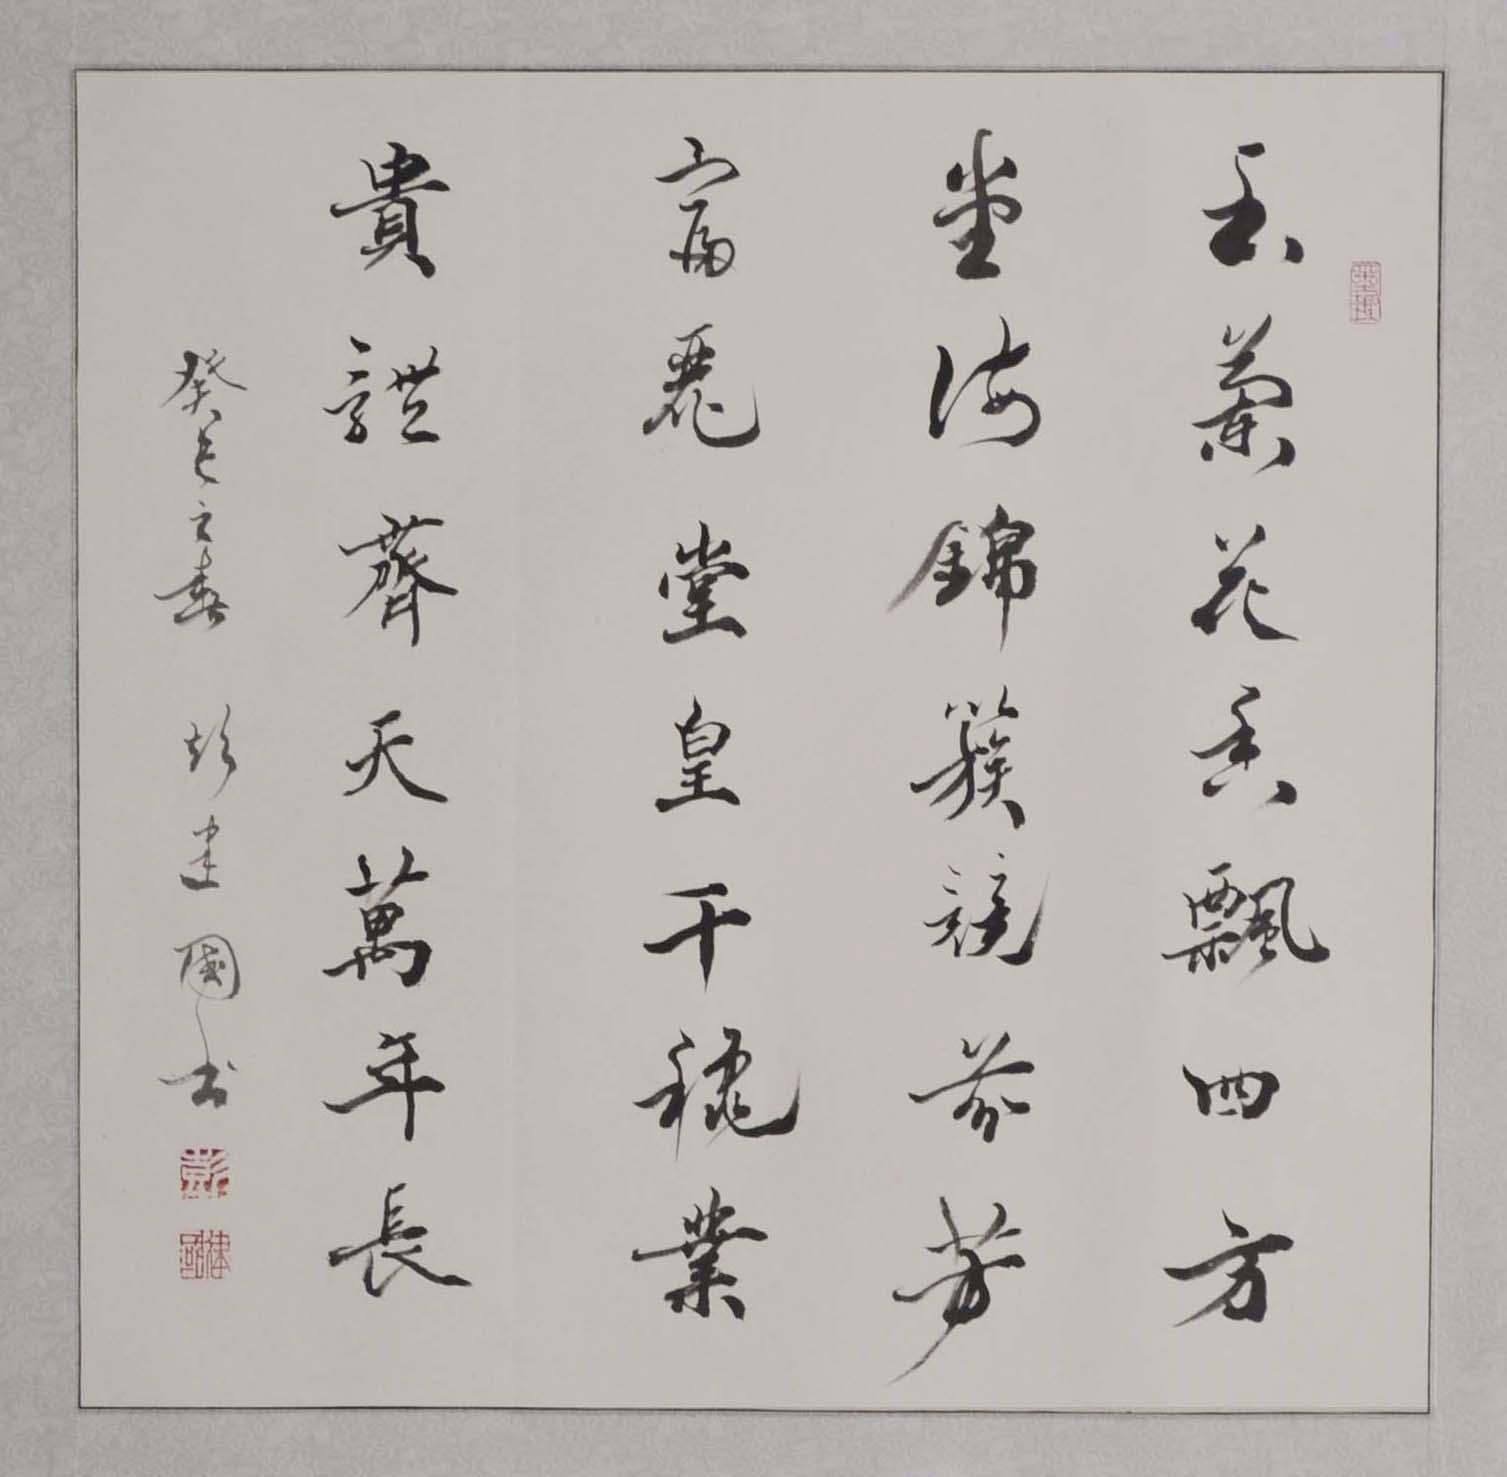 玉蘭花香飄四方
堂海錦簇競芬芳
富麗堂皇千秋業
貴體薺天萬年長
癸巳之春 彭建國書
彭
建國